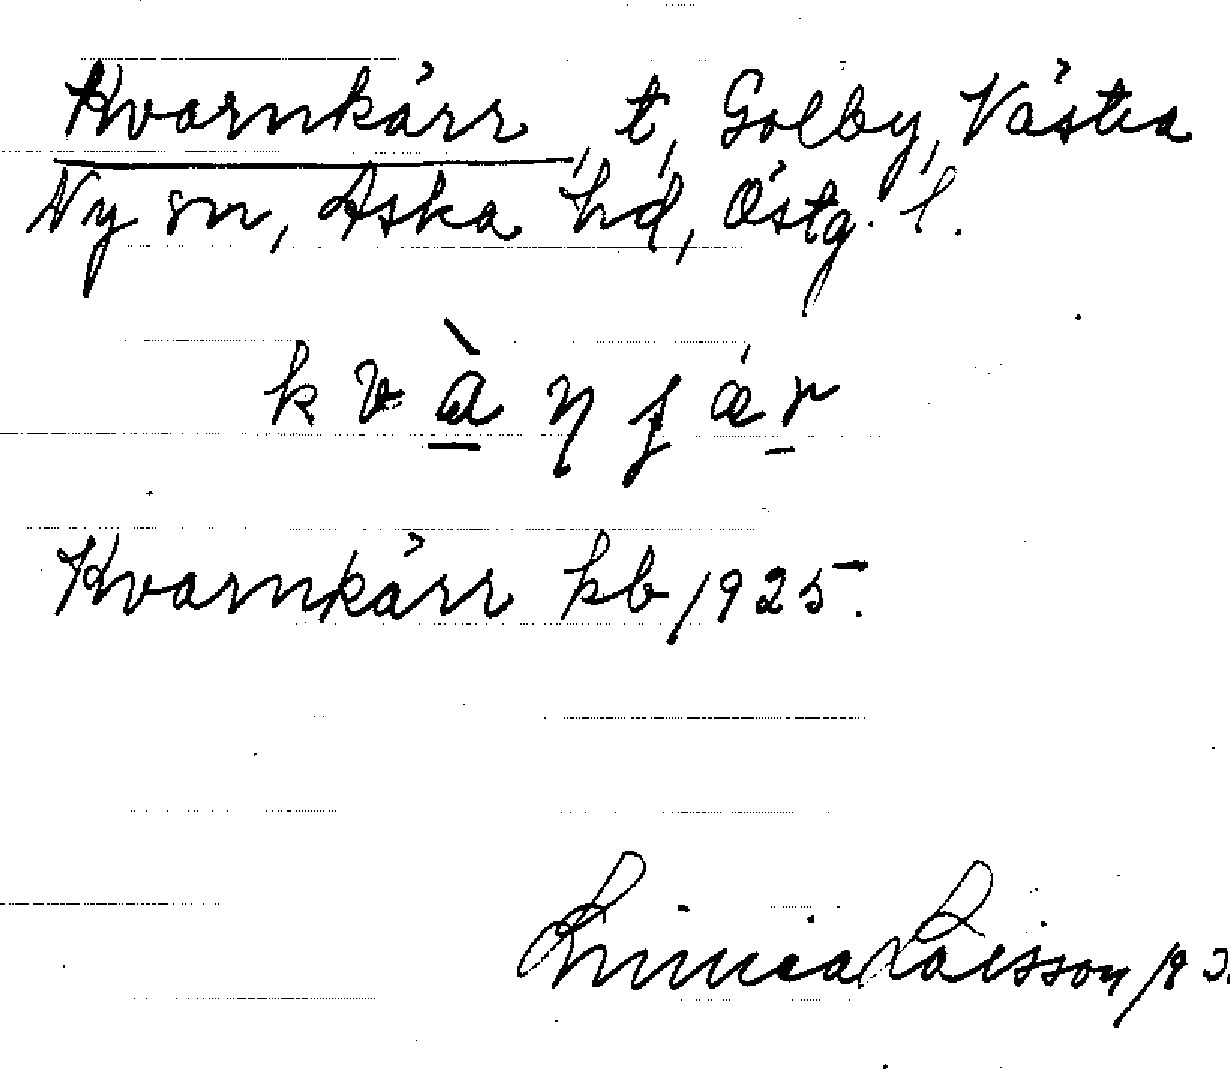 Kvarnkärr, t, Golby, Västra
Ny sn, Aska hd, Östg. l.
kvàŋʃær
Kvarnkärr kb 1925.
Linnea Larsson 193